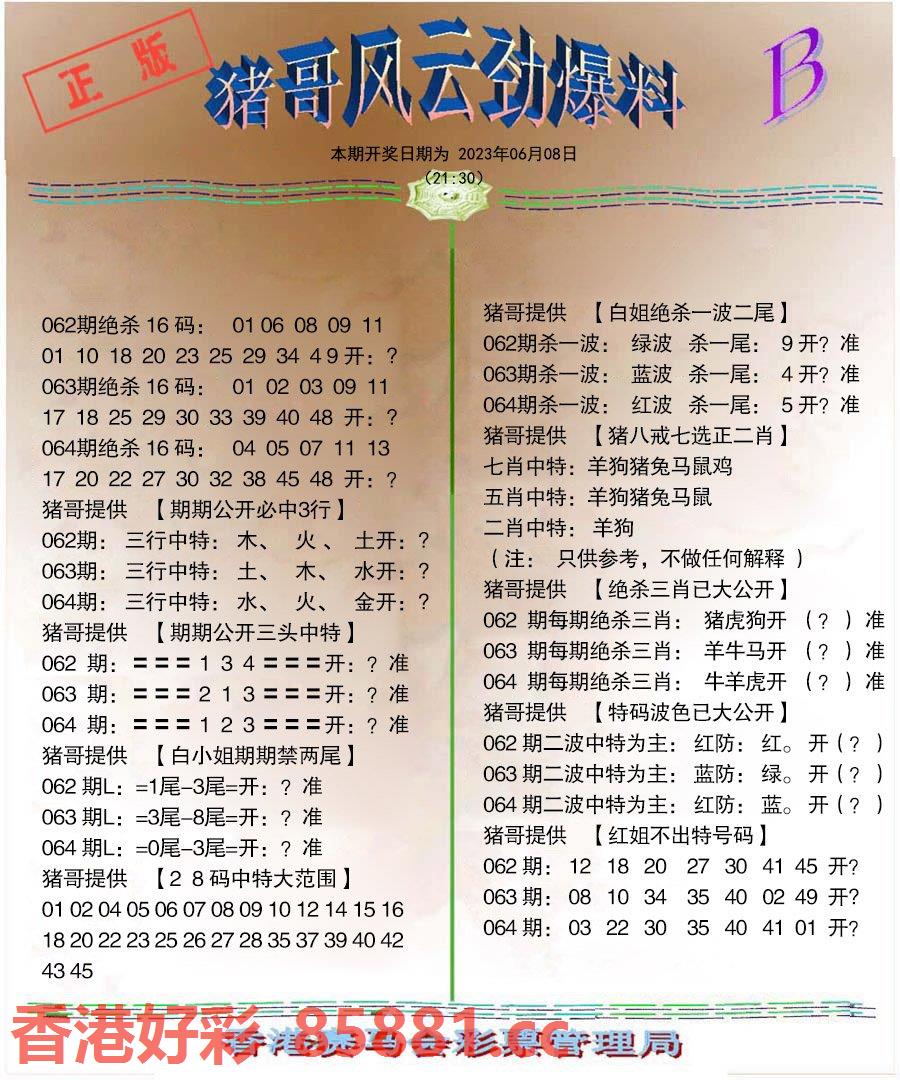 正版
猪哥风云劲爆料
B
本期开奖日期为 2023年06月08日
(21:30)
062期绝杀16码: 01 06 08 09 11
01 10 18 20 23 25 29 34 49开:?
063期绝杀16码: 01 02 03 09 11
17 18 25 29 30 33 39 40 48 开:?
064期绝杀16码: 04 05 07 11 13
17 20 22 27 30 32 38 45 48 开:?
猪哥提供 【期期公开必中3行】
062期: 三行中特: 木、 火、 土开:?
063期: 三行中特: 土、 木、 水开:?
064期: 三行中特: 水、 火、 金开:?
猪哥提供 【期期公开三头中特】
062 期: 〓〓〓1 3 4〓〓〓开:? 准
063 期: 〓〓〓2 1 3〓〓〓开:? 准
064 期: 〓〓〓1 2 3〓〓〓开:? 准
猪哥提供 【白小姐期期禁两尾】
062 期L: =1尾-3尾=开:? 准
063 期L: =3尾-8尾=开:? 准
064 期L: =0尾-3尾=开:? 准
猪哥提供 【2 8码中特大范围】
01 02 04 05 06 07 08 09 10 12 14 15 16
18 20 22 23 25 26 27 28 35 37 39 40 42
43 45
猪哥提供 【白姐绝杀一波二尾】
062期杀一波: 绿波 杀一尾: 9开? 准
063期杀一波: 蓝波 杀一尾: 4开? 准
064期杀一波: 红波 杀一尾: 5开? 准
猪哥提供 【猪八戒七选正二肖】
七肖中特: 羊狗猪兔马鼠鸡
五肖中特: 羊狗猪兔马鼠
二肖中特: 羊狗
(注: 只供参考, 不做任何解释)
猪哥提供 【绝杀三肖已大公开】
062 期每期绝杀三肖: 猪虎狗开 (?)准
063 期每期绝杀三肖: 羊牛马开 (?)准
064 期每期绝杀三肖: 牛羊虎开 (?)准
猪哥提供 【特码波色已大公开】
062期二波中特为主: 红防: 红。开(?)
063期二波中特为主: 蓝防: 绿。开(?)
064期二波中特为主: 红防: 蓝。开(?)
猪哥提供 【红姐不出特号码】
062期: 12 18 20 27 30 41 45 开?
063期: 08 10 34 35 40 02 49 开?
064期: 03 22 30 35 40 41 01 开?
香港好彩 85881.cc
香港赛马会彩票管理局